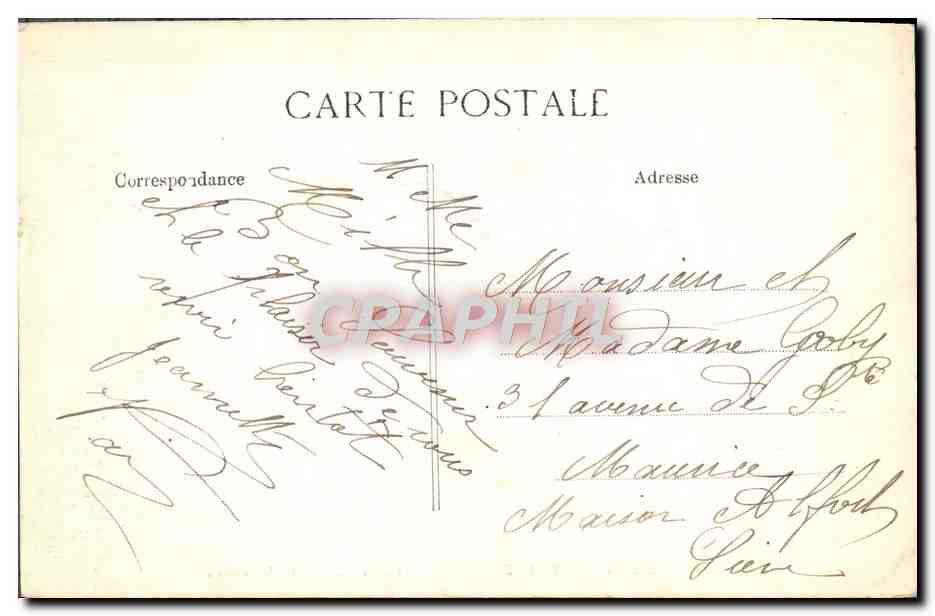 CARTE POSTALE
Correspondance
Adresse
Mille
et le plaisir de vous
revoir bientot
Jeannette
Monsieur et
Madame Gooby
31 avenue de Ste
Maurice
Maison Alfort
Seine
CRAPHIL